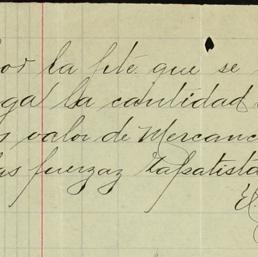 por la pte. que se
ga la cantidad
valor de Mercanc
las fuerzaz zapatista